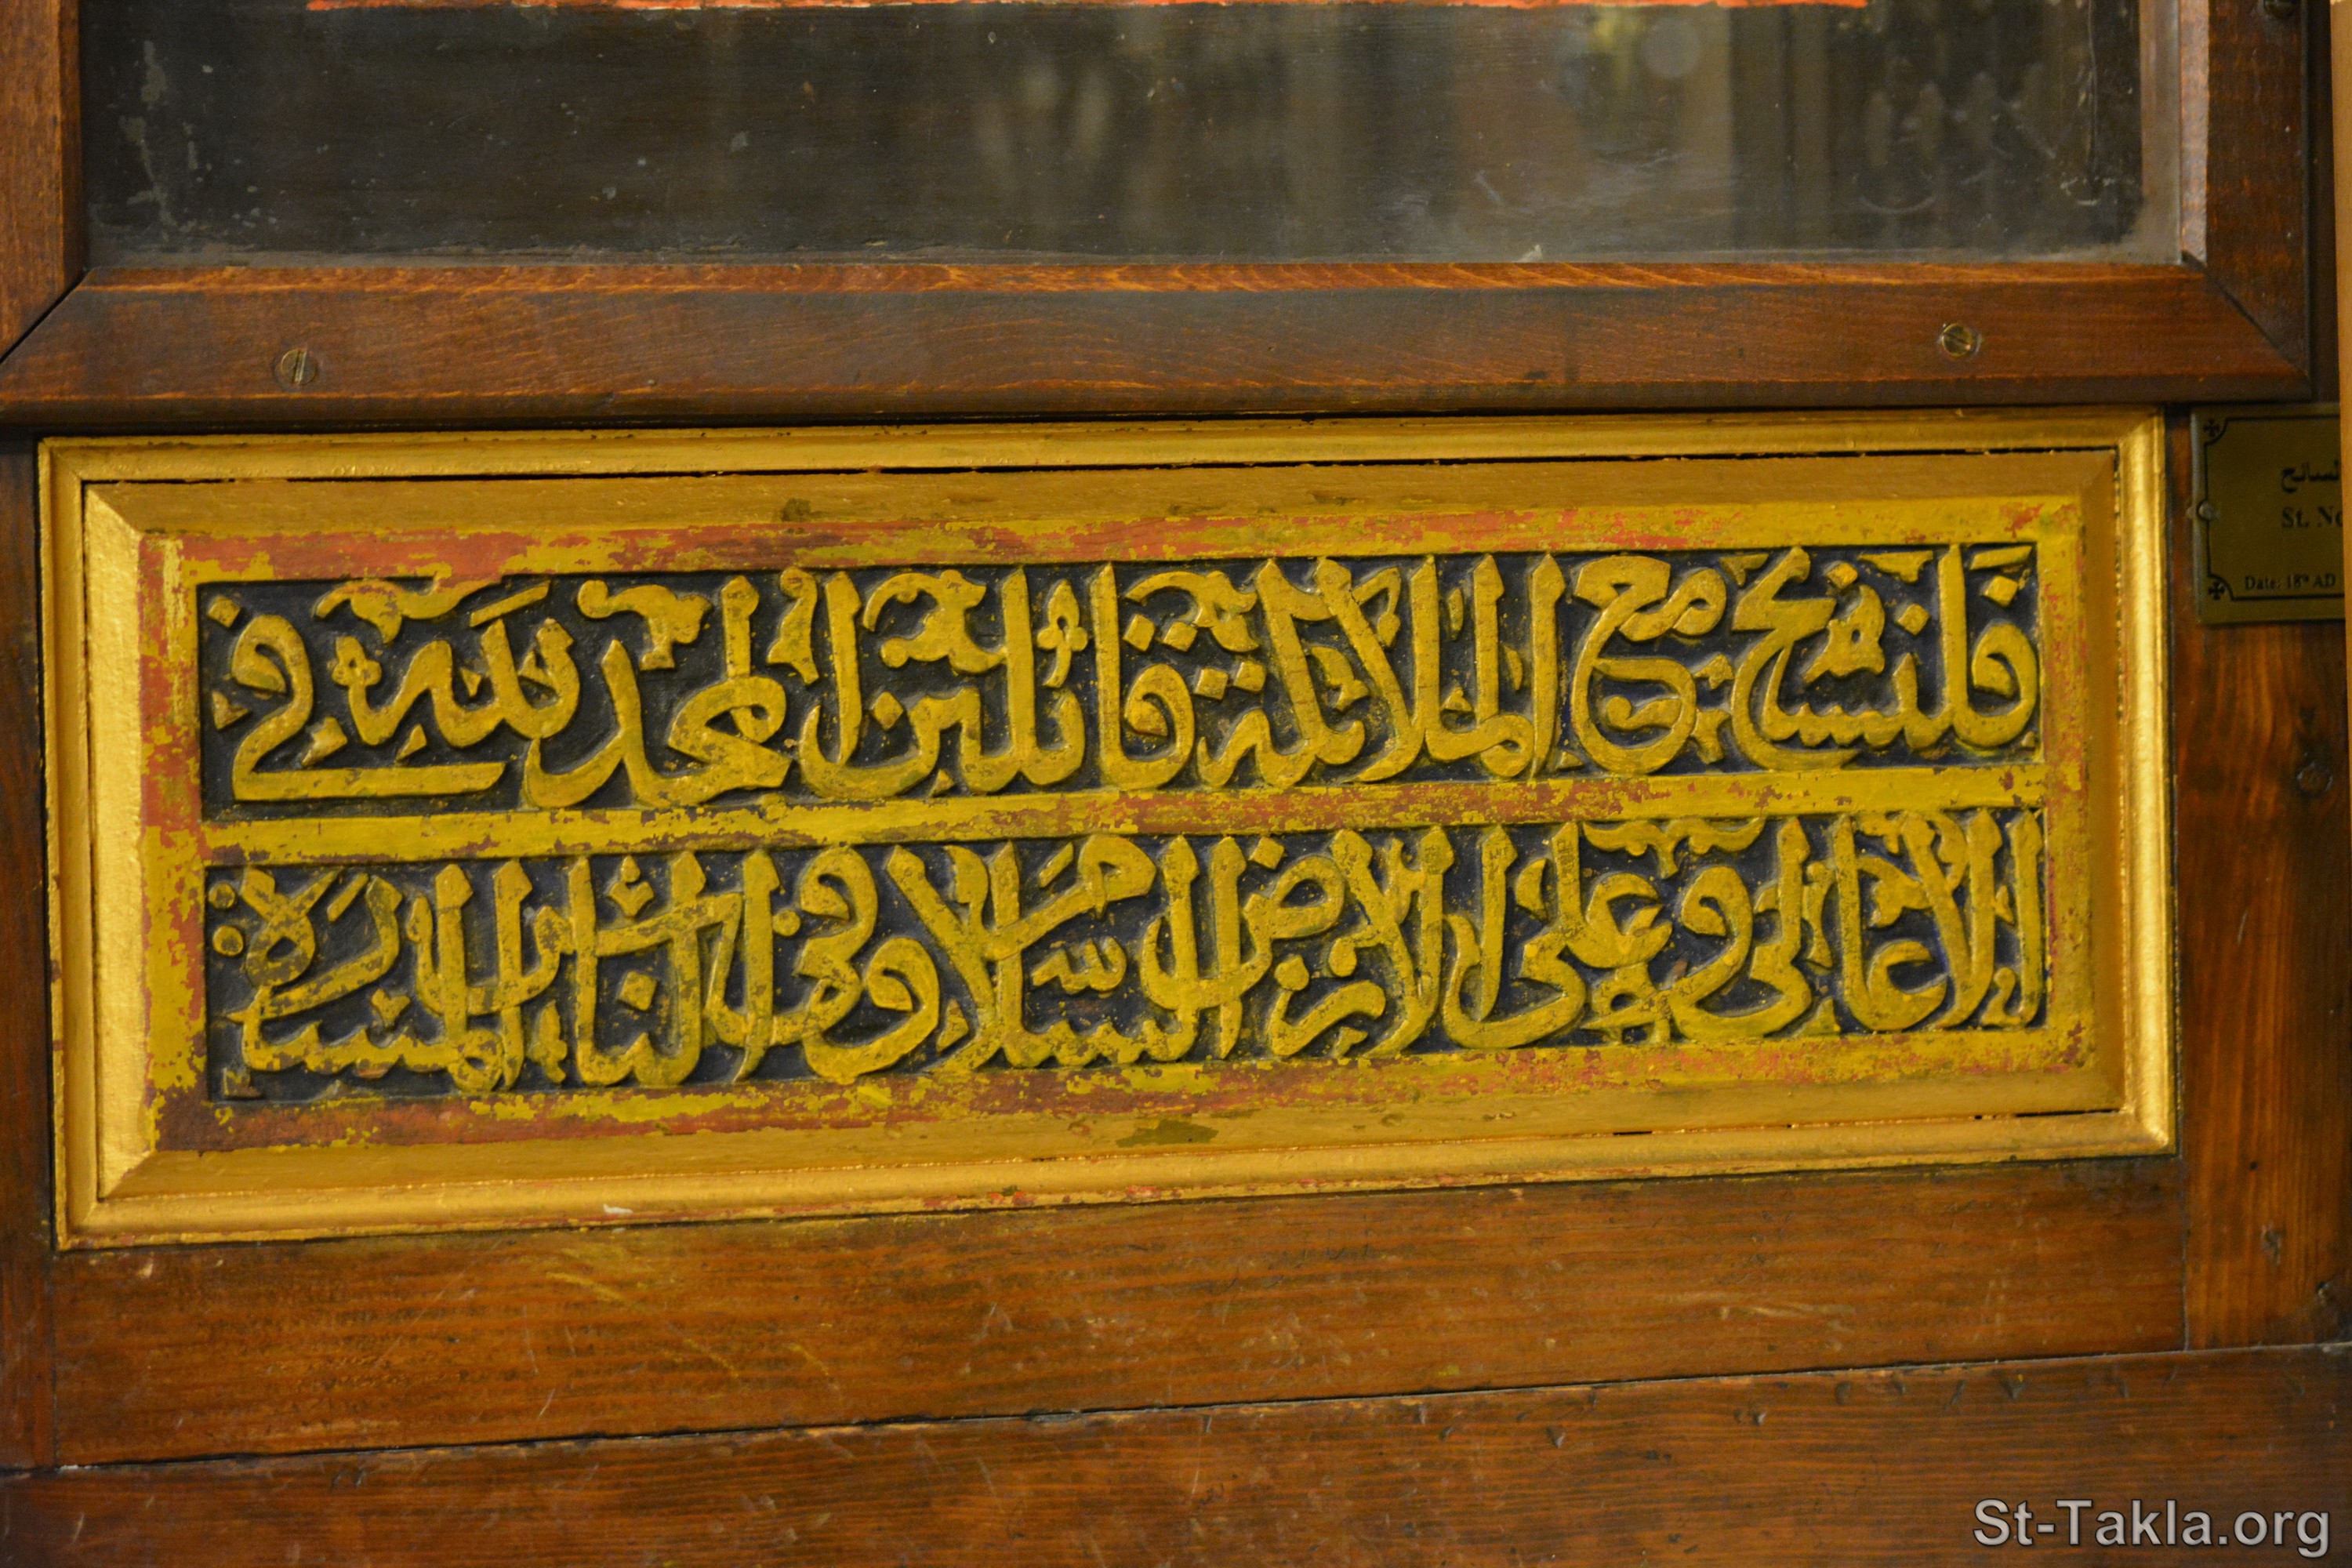 فلنسبح مع الملائكة قائلين المجد لله في
الاعالي وعلى الارض السلام وفي الناس المسرة
السائح
St. N
Date: 18th AD
St-Takla.org